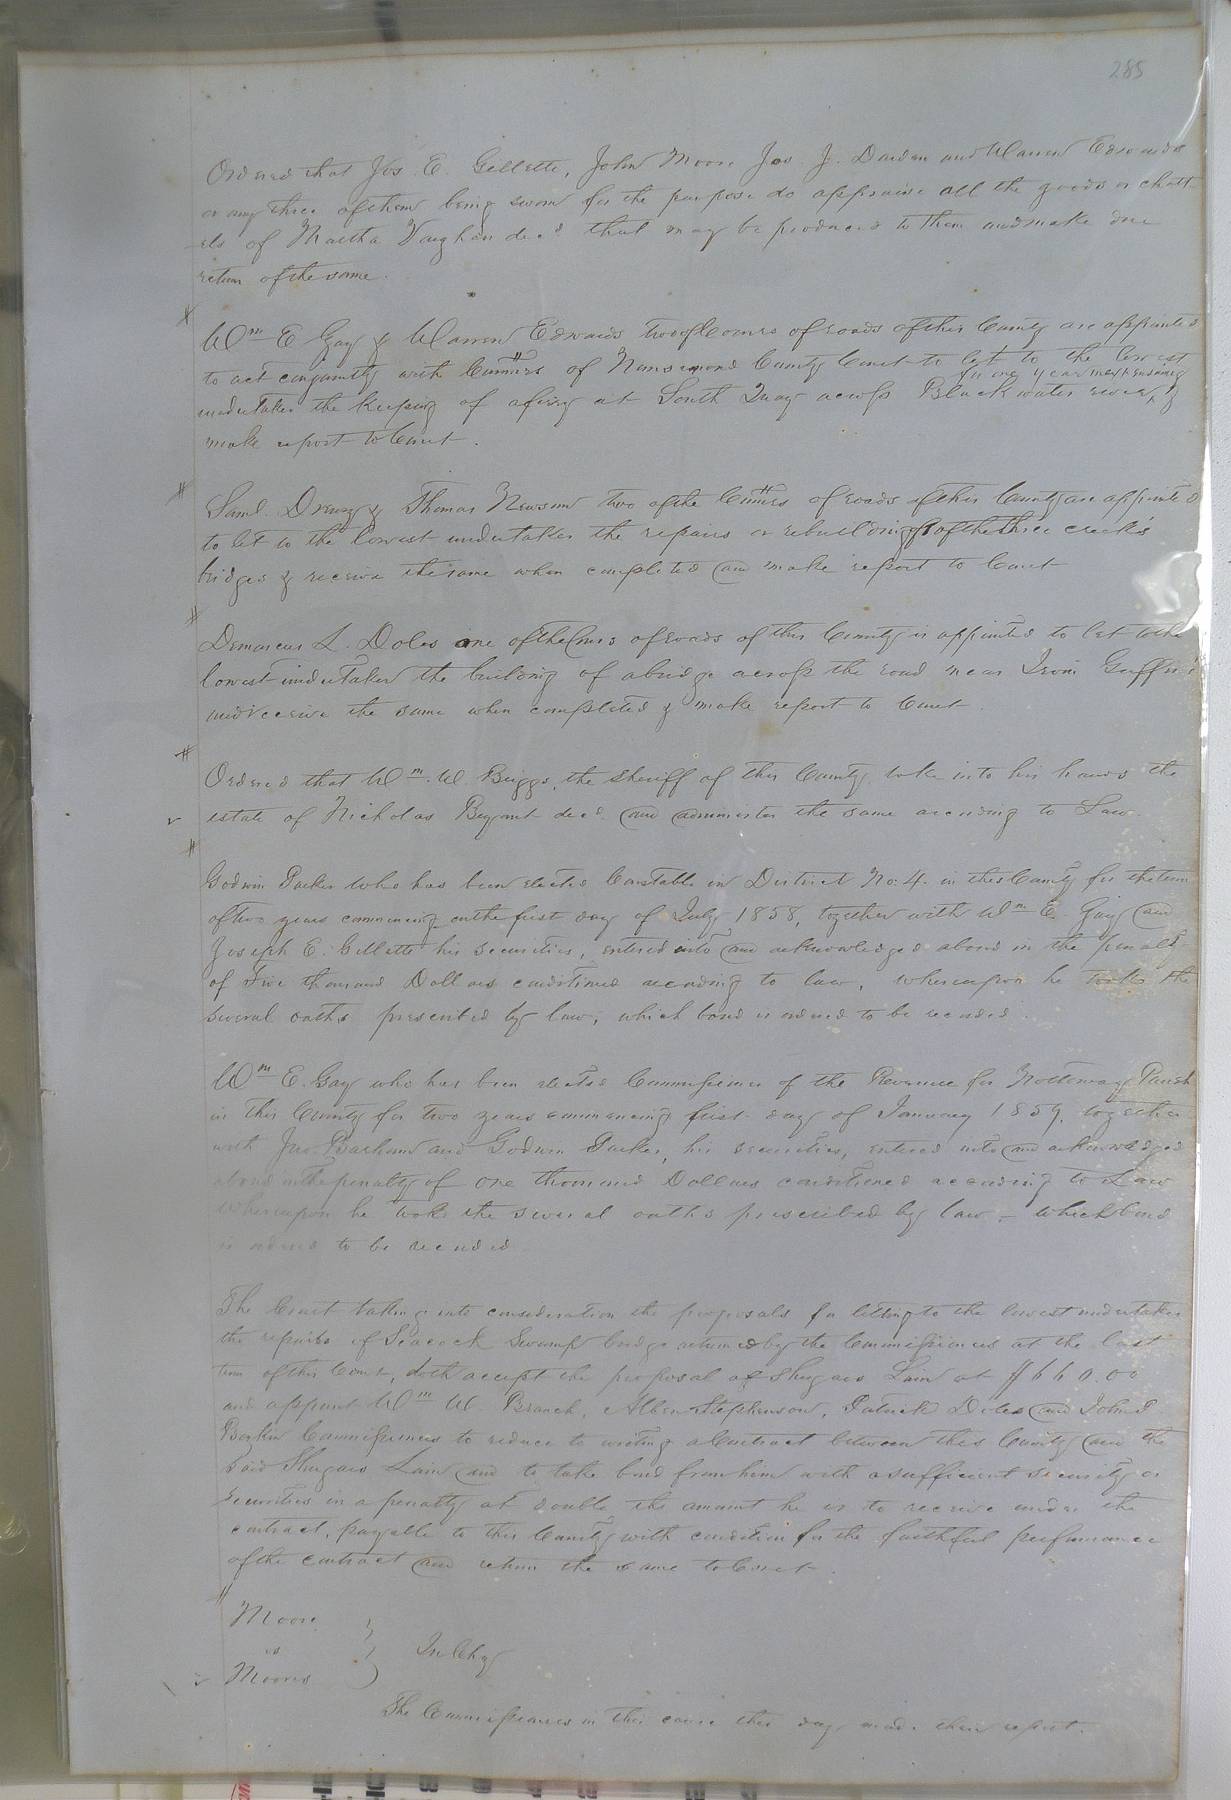 285
Ordered that Jos. E. Gillette, John Moore Jos. J. Darden and Warren Edwards
or any three of them being sworn for the purpose do appraise all the goods or chatt
els of Martha Vaughan decd that may be produced to them and make due
return of the same.
#
Wm E Gay & Warren Edwards two of Comrs of roads of this County are appointed
to act conjointly with Commrs of Nansemond County Court to let to the lowest
for one year next ensuing
undertaker the keeping of a ferry at South Quay across Black water river, &
make report to Court.
#
Saml. Drewry & Thomas Newsum two of the Commrs of roads of this County are appointed
to let to the lowest undertaker the repairs or rebuilding of the three creeks
bridges & receive the same when completed and make report to Court
#
Demarcus L. Doles one of the Cmrs of roads of this County is appointed to let to the
lowest undertaker the building of a bridge across the road near
and receive the same when completed & make report to Court.
#
Ordered that Wm. W. Briggs, the sheriff of this County take into his hands the
estate of Nicholas Bryant decd. and administer the same according to Law.
#
Godwin Parker who has been elected Constable in District No. 4. in this County for the term
of two years commencing on the first day of July 1858, together with Wm E. Gay and
Joseph E. Gillette his securities, entered into and acknowledged a bond in the penalty
of Five thousand Dollars conditioned according to law, whereupon he took the
several oaths presented by law, which bond is ordered to be recorded.
Wm E. Gay who has been elected Commissioner of the Revenue for Nottoway Parish
in this County for two years commencing first day of January 1859, together
with Jno. Barham and Godwin Parker, his securities, entered into and acknowledged
a bond in the penalty of one thousand Dollars conditioned according to Law
Whereupon he took the several oaths prescribed by law - which bond
is ordered to be recorded
The Court taking into consideration the proposals for letting to the lowest undertaker
the repairs of Peacock Swamp bridge returned by the Commissioners at the last
term of this Court, doth accept the proposal of Shugars Lain at $660.00
and appoint Wm W. Branch, Albert Stephenson, Patrick Doles and John D
Barkin Commissioners to reduce to writing a Contract between this County and the
said Shugars Lain and to take bond from him with a sufficient security or
securities in a penalty at double the amount he is to receive under the
contract, payable to this County with condition for the faithful performance
of the contract and return the same to Court.
#
Moore
vs } In Chy
Moores
The Commissioners in this cause this day made their report.